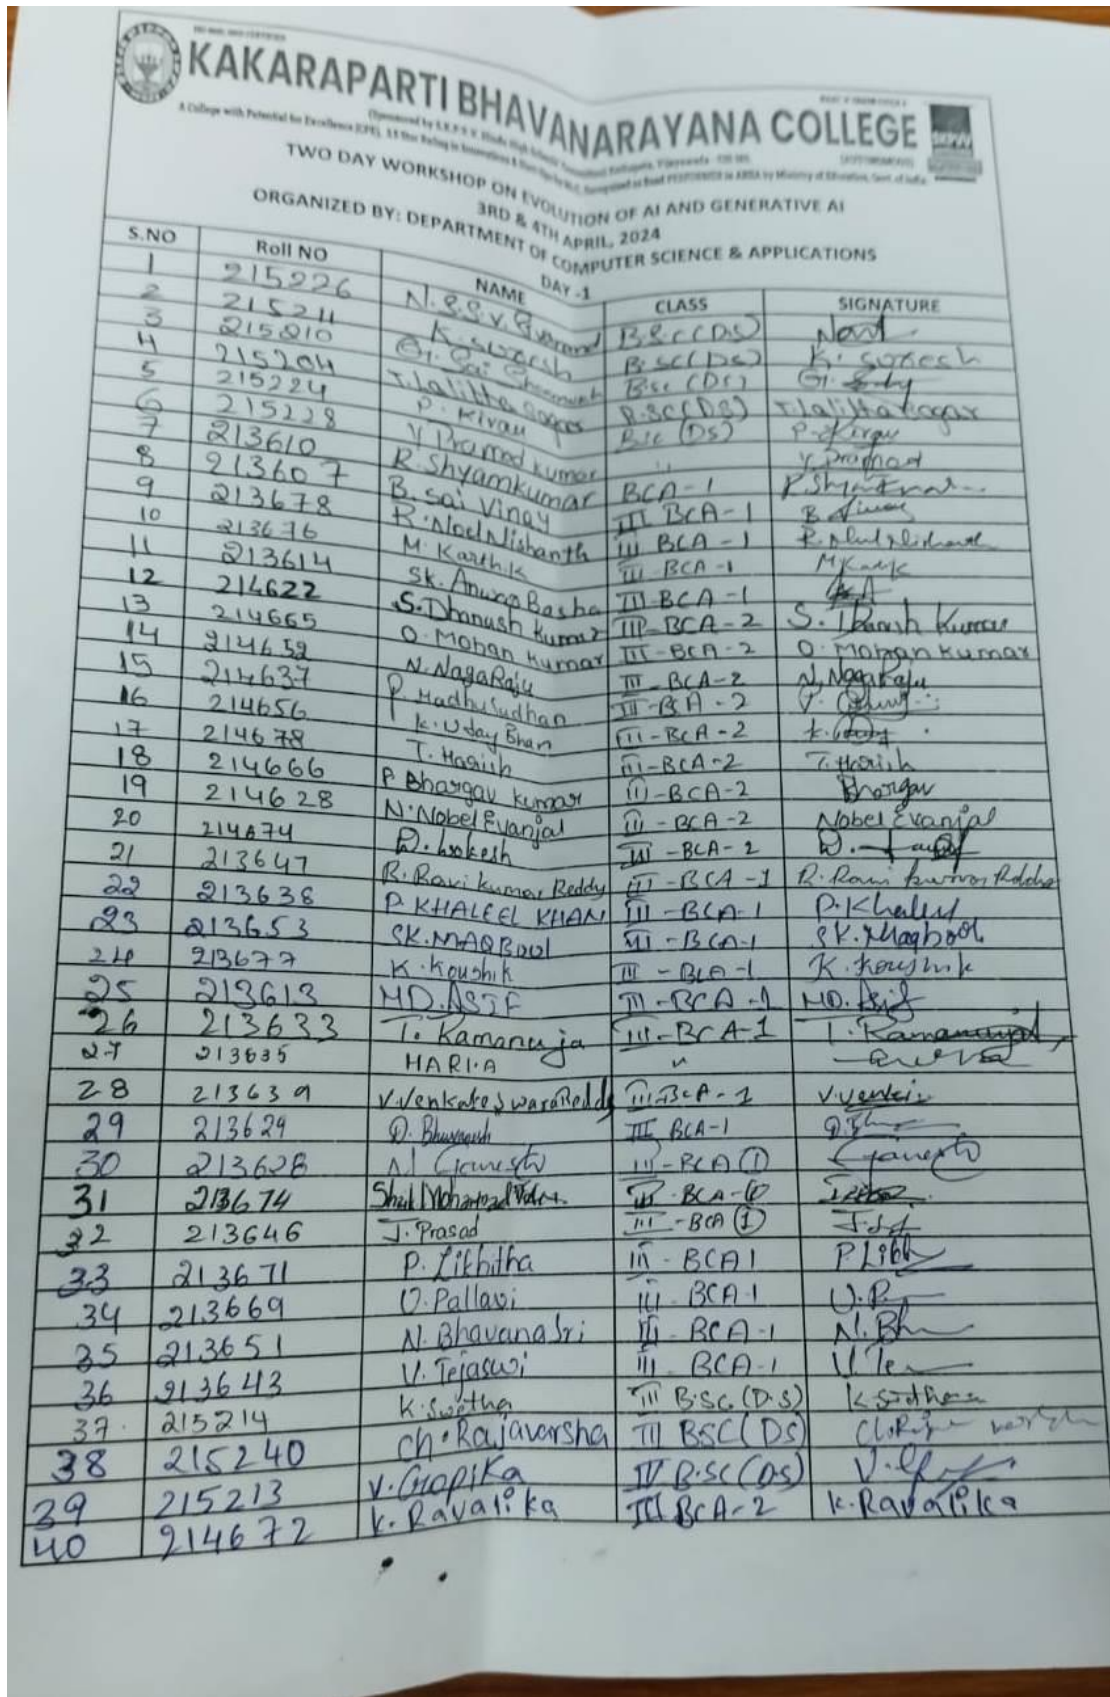 KAKARAPARTI BHAVANARAYANA COLLEGE
TWO DAY WORKSHOP ON EVOLUTION OF AI AND GENERATIVE AI
3RD & 4TH APRIL, 2024
ORGANIZED BY: DEPARTMENT OF COMPUTER SCIENCE & APPLICATIONS
DAY -1
S.NO Roll NO NAME CLASS SIGNATURE
1 215226 N.S.S.V. B.Sc(DS)
2 215211 K. Suresh B.Sc(DS) K. Suresh
3 215210 G. Sai B.Sc (DS) G.
4 215204 T. Lalitha Sagar B.SC(DS) T. Lalitha Sagar
5 215224 P. Kiran B.Sc (DS) P. Kiran
6 215228 Y Pramod Kumar " Y Pramod
7 213610 R. Shyamkumar BCA-1
8 213607 B. Sai Vinay III BCA-1 B Vinay
9 213678 R. Noel Nishanth III BCA-1
10 213676 M. Karthik III BCA-1 M Kartik
11 213614 Sk. Anwar Basha III-BCA-1
12 214622 S. Dhanush Kumar III-BCA-2 S. Dhanush Kumar
13 214665 O. Mohan Kumar III-BCA-2 O. Mohan Kumar
14 214652 N. NagaRaju III-BCA-2 N. NagaRaju
15 214637 P Madhusudhan III-BCA-2
16 214656 K. Uday Bhan III-BCA-2
17 214678 T. Harish III-BCA-2 T. Harish
18 214666 P. Bhargav Kumar III-BCA-2 Bhargav
19 214628 N. Nobel Evanjal III-BCA-2 Nobel Evanjal
20 214674 D. Lokesh III-BCA-2
21 213647 R. Ravi Kumar Reddy III-BCA-1 R. Ravi Kumar Reddy
22 213638 P. KHALEEL KHAN III-BCA-1 P. Khaleel
23 213653 SK. MAQBOOL III-BCA-1 SK. Maqbool
24 213677 K. Koushik III-BCA-1 K. Koushik
25 213613 MD. ASIF III-BCA-1 MD. Asif
26 213633 T. Ramanuja III-BCA-1 T. Ramanuja
27 213635 HARI.A "
28 213639 V. Venkateswara Reddy III-BCA-1 V. Venkat
29 213629 D. III BCA-1
30 213628 N. Ganesh III-BCA (1) Ganesh
31 213674 Shaik Mohammad III-BCA-(1)
32 213646 J. Prasad III-BCA (1)
33 213671 P. Likhitha III-BCA 1 P. Likh
34 213669 U. Pallavi III-BCA-1 U. P
35 213651 N. Bhavanasri III-BCA-1 N. Bh
36 213643 V. Tejaswi III-BCA-1 V. Te
37. 215214 K. Swetha III B.SC.(D.S)
38 215240 Ch. Rajavarsha III BSC(DS)
39 215213 V. Gopika IV B.SC(DS)
40 214672 K. Ravalika III BCA-2 K. Ravalika